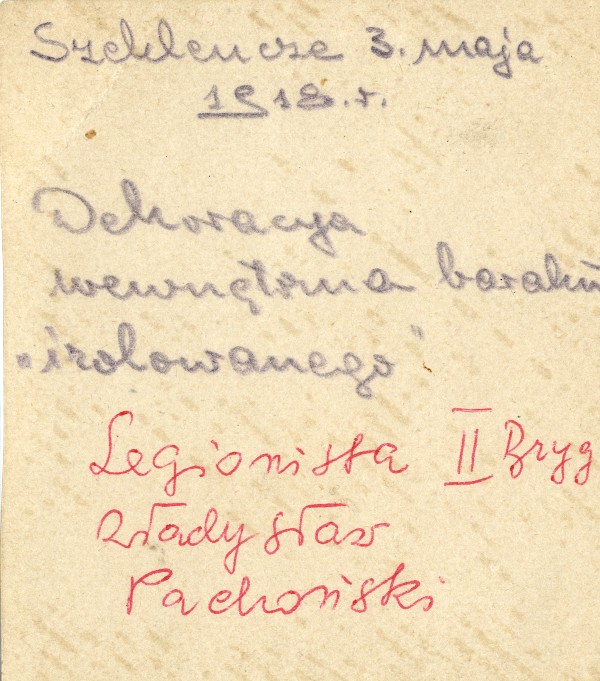 Szeklencze 3. maja
1918. r.
Dekoracya
wewnętrzna baraku
„izolowanego"
Legionista II Bryg
Władysław
Pachoński